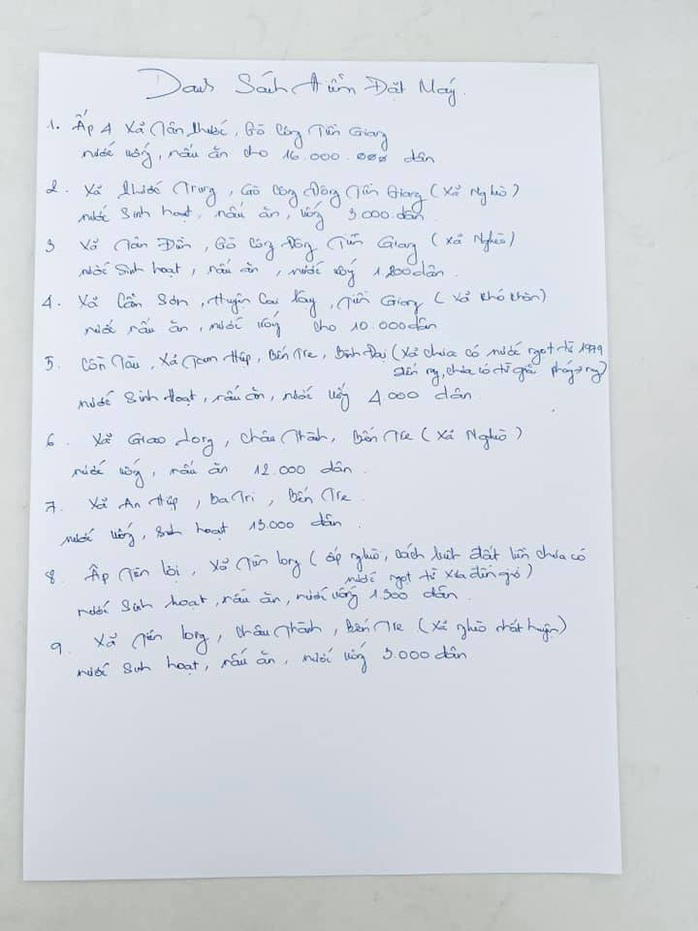 Danh Sách Hiến Đặt Máy.
1. Ấp 4 Xã Tân Phước, Gò Công Tiền Giang
nước uống, nấu ăn cho 16.000 dân
2. Xã Phước Trung, Gò Công Đông Tiền Giang (Xã Nghèo)
nước sinh hoạt, nấu ăn, uống 3.000 dân.
3 Xã Tân Điền, Gò Công Đông Tiền Giang (Xã Nghèo)
nước sinh hoạt, nấu ăn, nước uống 1.200 dân.
4. Xã Cẩm Sơn, Huyện Cai Lậy, Tiền Giang (Xã Khó Khăn)
nước nấu ăn, nước uống cho 10.000 dân
5. Cồn Tàu, Xã Tam Hiệp, Bến Tre, Bình Đại (Xã chưa có nước ngọt từ 1979
đến nay, chưa có từ giải phóng nay)
nước Sinh Hoạt, nấu ăn, nước uống 4.000 dân.
6. Xã Giao Long, Châu Thành, Bến Tre (Xã Nghèo)
nước uống, nấu ăn 12.000 dân.
7. Xã An Hiệp, Ba Tri, Bến Tre.
nước uống, sinh hoạt 13.000 dân.
8. Ấp Tân lợi, Xã Tân long (ấp nghèo, cách biệt đất liền chưa có
nước ngọt từ xưa đến giờ)
nước sinh hoạt, nấu ăn, nước uống 1.300 dân.
9. Xã Tân long, Châu Thành, Bến Tre (Xã nghèo nhất huyện)
nước sinh hoạt, nấu ăn, nước uống 3.000 dân